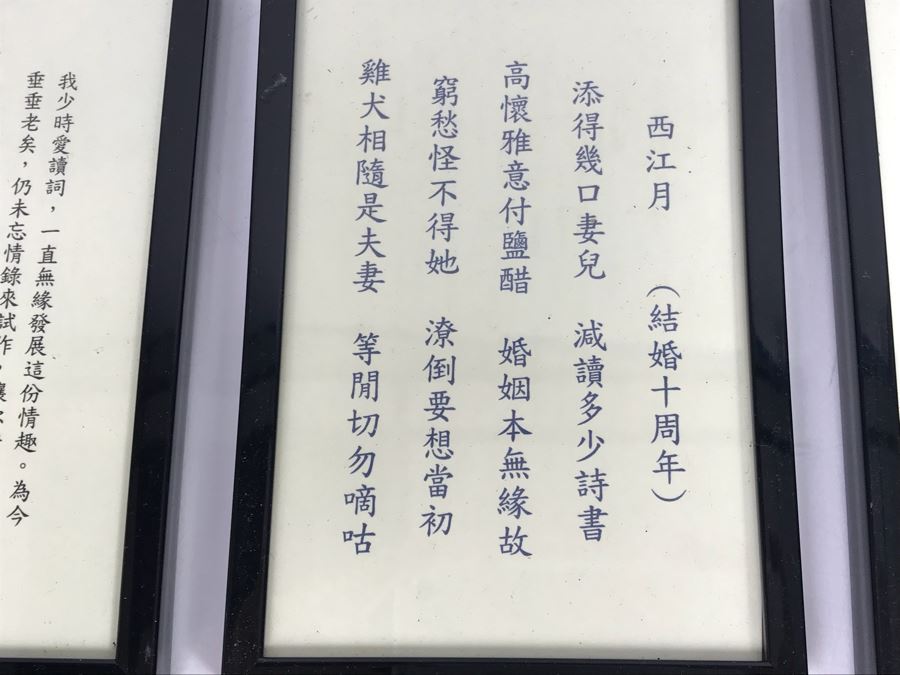 西江月 （結婚十周年）
添得幾口妻兒 減讀多少詩書
高懷雅意付鹽醋 婚姻本無緣故
窮愁怪不得她 潦倒要想當初
雞犬相隨是夫妻 等閒切勿嘀咕
我少時愛讀詞，一直無緣發展這份情趣。為今
垂垂老矣，仍未忘情錄來試作，